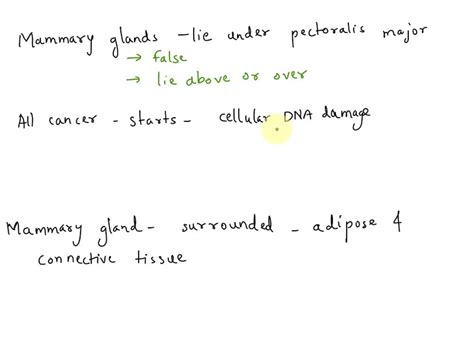 Mammary glands - lie under pectoralis major
→ false
→ lie above or over
All cancer - starts - cellular DNA damage
Mammary gland - surrounded - adipose &
connective tissue